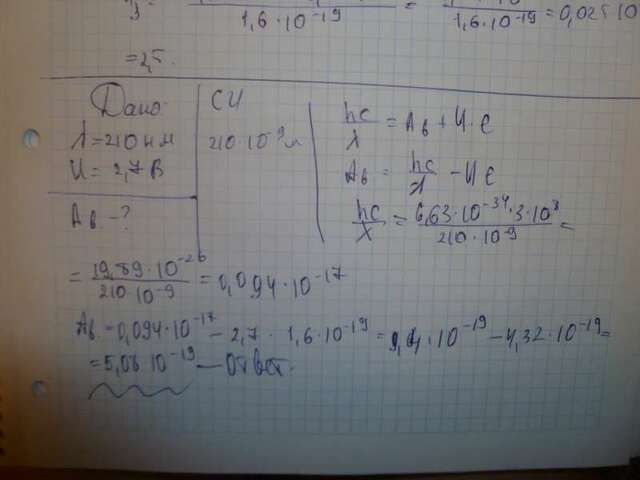 1,6·10⁻¹⁹ = 1,6·10⁻¹⁹ = 0,025·10
= 2,5.
Дано
λ = 210 нм
U = 2,7 В
Aв. - ?
СИ
210·10⁻⁹ м
hc/λ = Aв + U·e
Aв = hc/λ - U e
hc/λ = 6,63·10⁻³⁴·3·10⁸ / 210·10⁻⁹ =
= 19,89·10⁻²⁶ / 210·10⁻⁹ = 0,094·10⁻¹⁷
Aв. = 0,094·10⁻¹⁷ - 2,7 · 1,6·10⁻¹⁹ = 9,4·10⁻¹⁹ - 4,32·10⁻¹⁹ =
= 5,08·10⁻¹⁹ — Ответ.